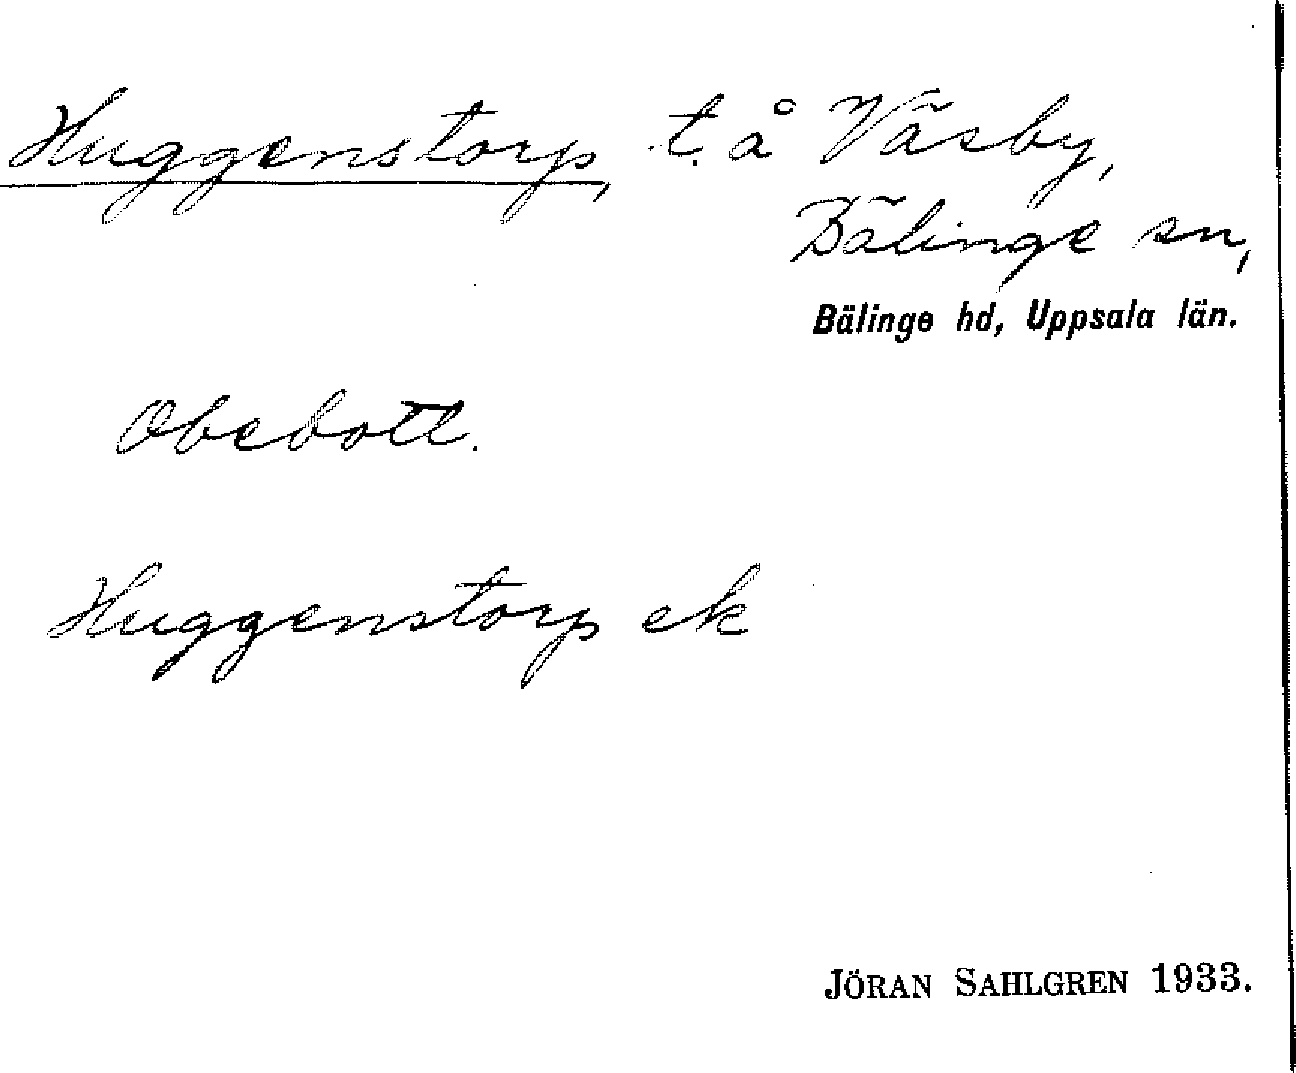 Huggenstorp, t. å Väsby,
Bälinge sn,
Bälinge hd, Uppsala län.
Obebott.
Huggenstorp ek
JÖRAN SAHLGREN 1933.